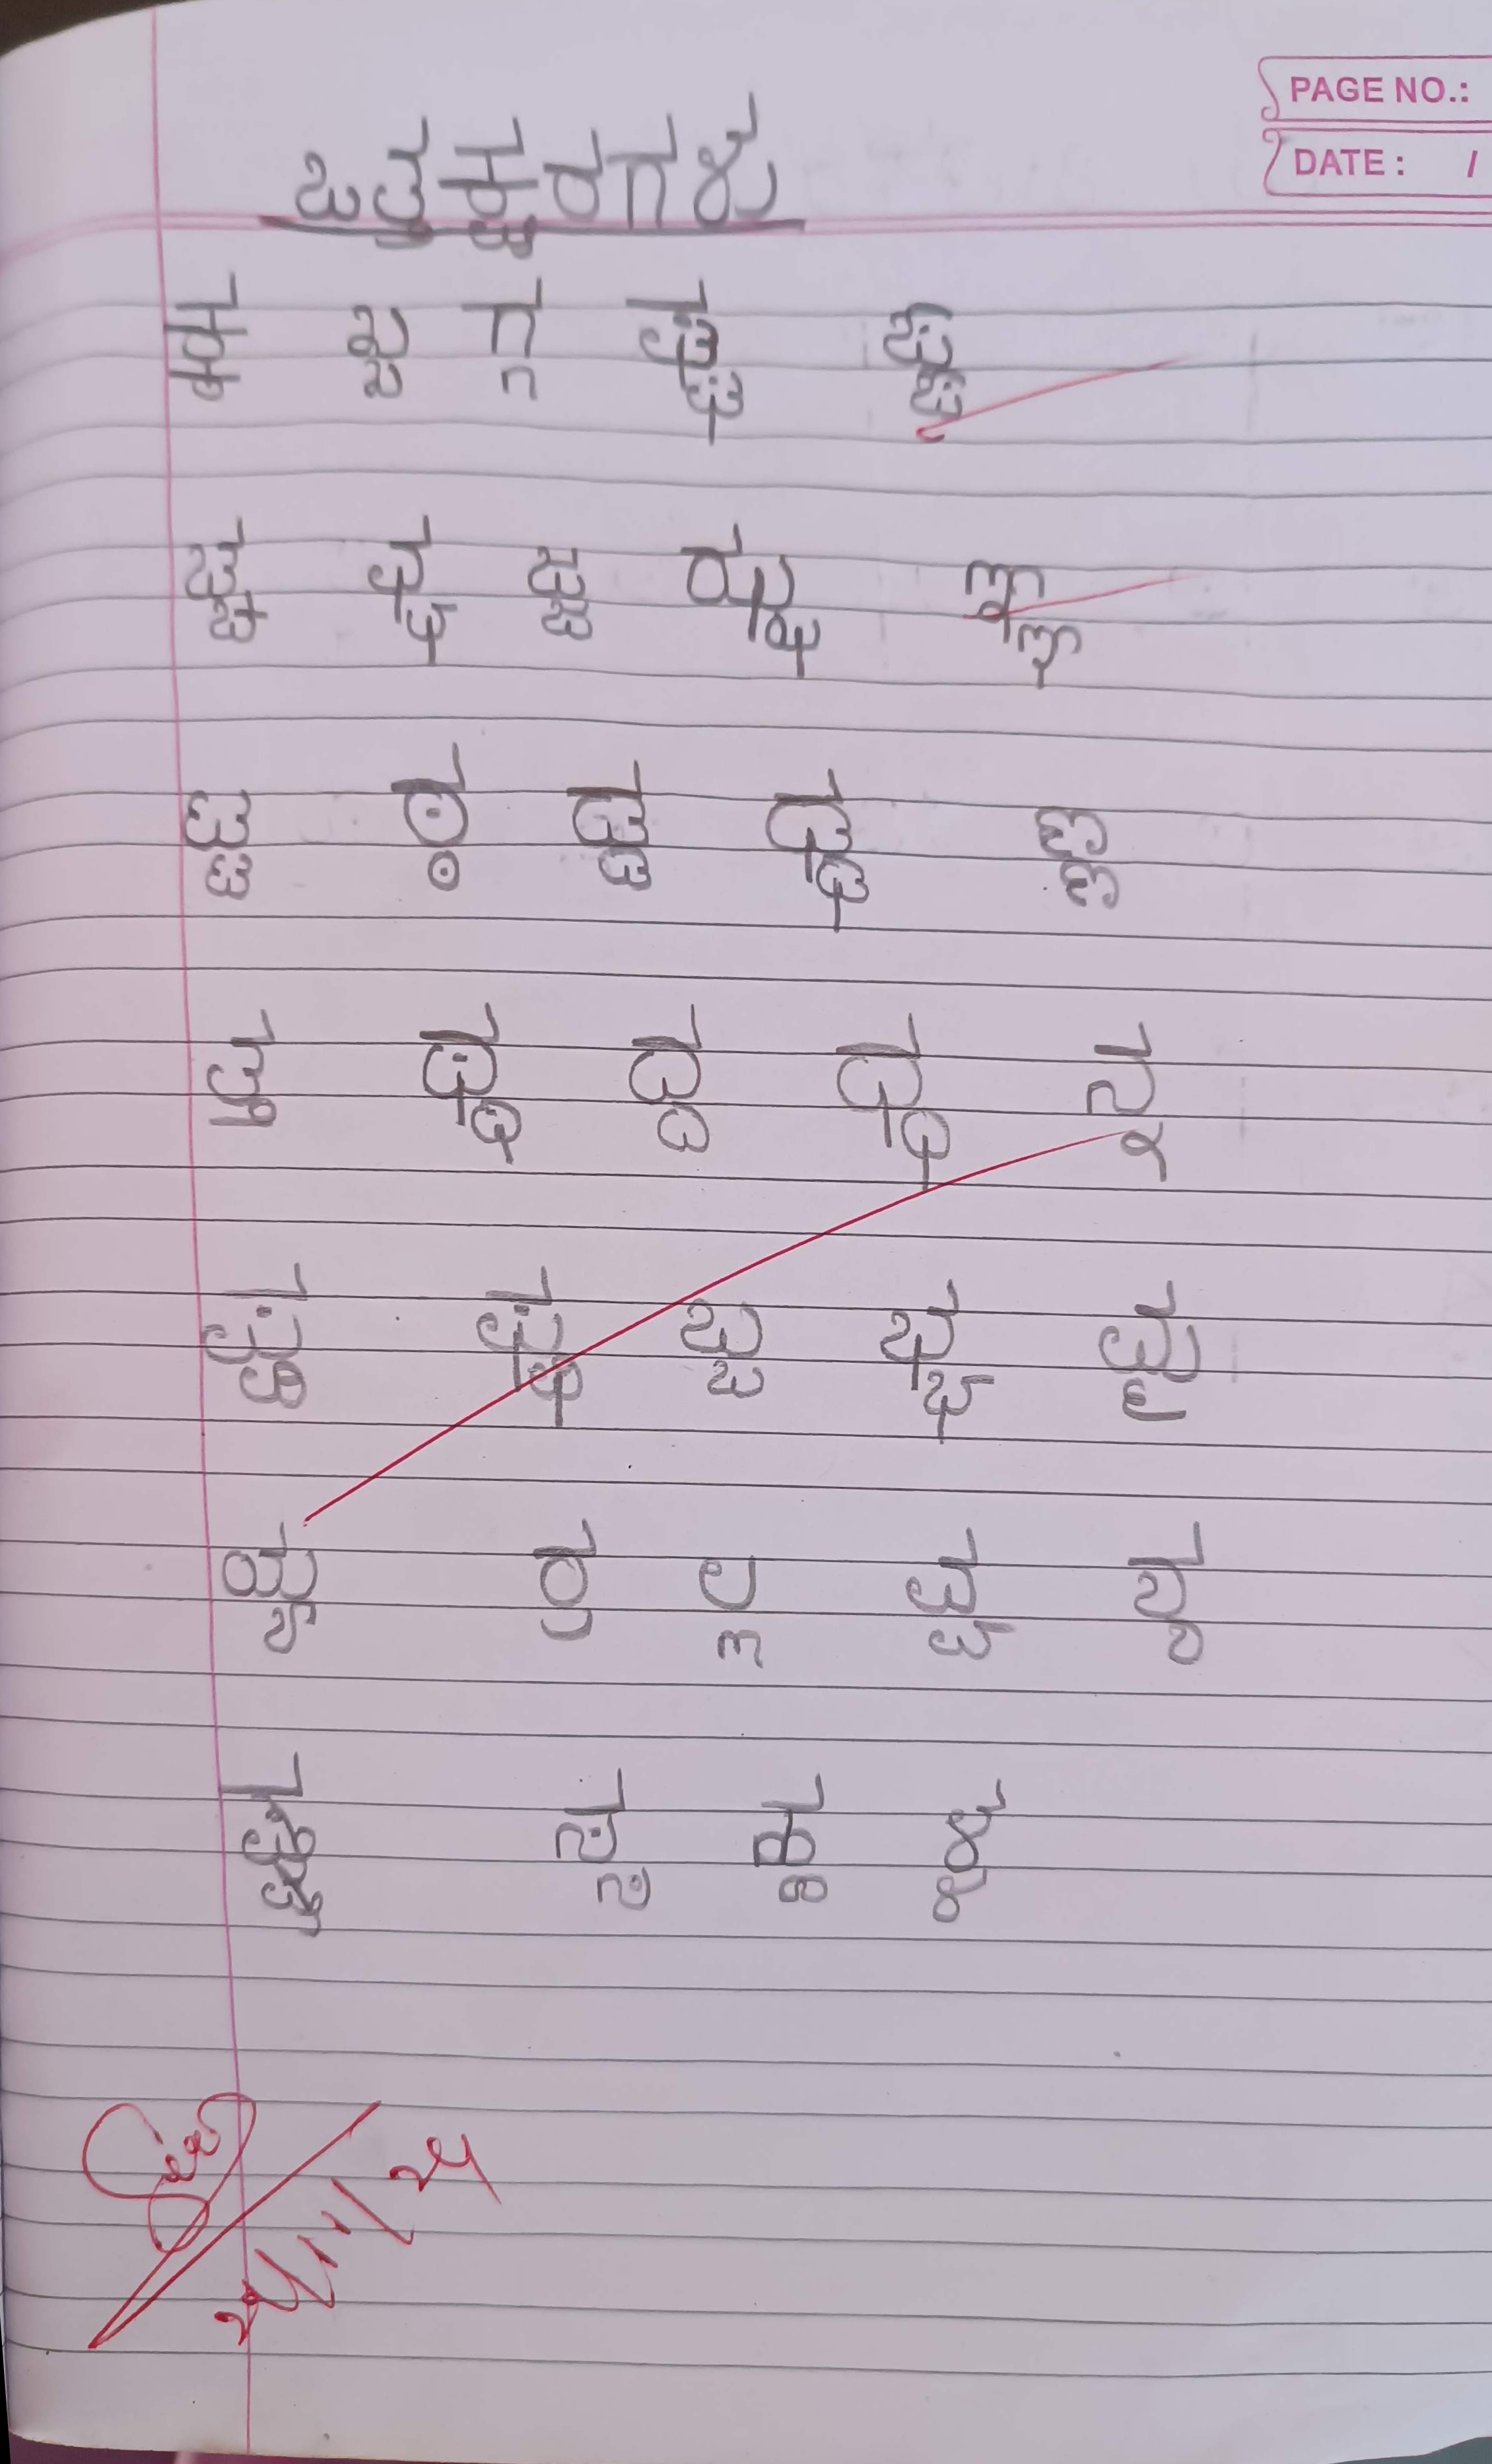 PAGE NO.:
DATE : /
ಒತ್ತಕ್ಷರಗಳು
ಕ್ಕ ಖ್ಖ ಗ್ಗ ಘ್ಘ ಙ್ಙ
ಚ್ಚ ಛ್ಛ ಜ್ಜ ಝ್ಝ ಞ್ಞ
ಟ್ಟ ಠ್ಠ ಡ್ಡ ಢ್ಢ ಣ್ಣ
ತ್ತ ಥ್ಥ ದ್ದ ಧ್ಧ ನ್ನ
ಪ್ಪ ಫ್ಫ ಬ್ಬ ಭ್ಭ ಮ್ಮ
ಯ್ಯ ರ್ರ ಲ್ಲ ವ್ವ ಶ್ಶ
ಷ್ಷ ಸ್ಸ ಹ್ಹ ಳ್ಳ